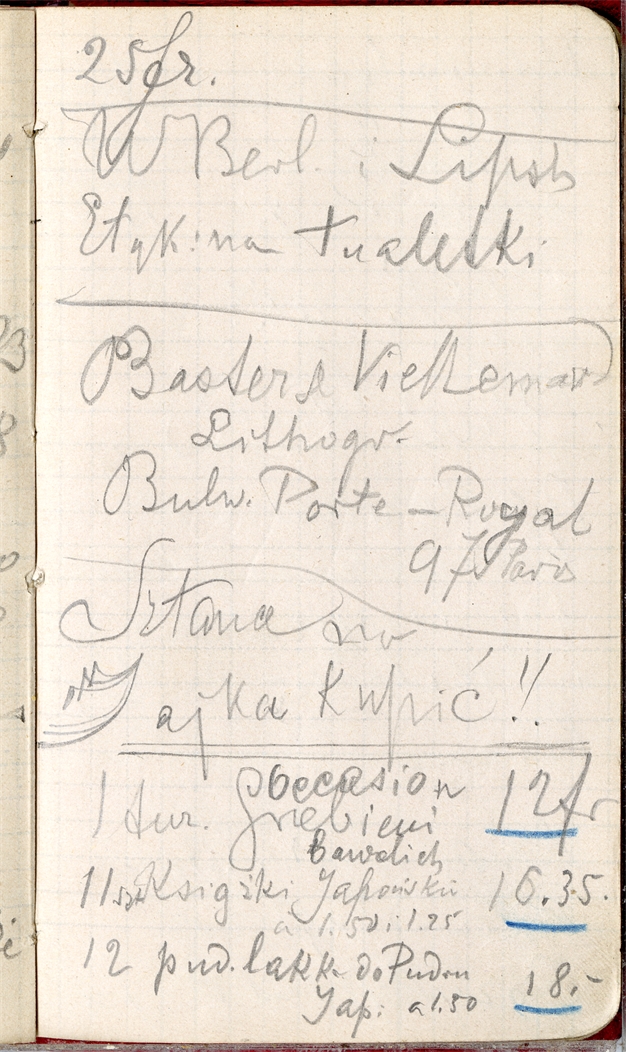 25 fr.
W Berl. i Lipsk
Etyk: na tualetki
Baster & Vieillemard
Lithogr.
Bulw. Porte-Royal
97 Paris
Sztance na
ajka Kupić!!
occasion
1 tuz. grzebieni 12 fr
11 szt Książki Japońskie 16.35.
a 1.50 i 1.25
12 pud. lakk. do Pudru 18.-
Jap: a 1.50